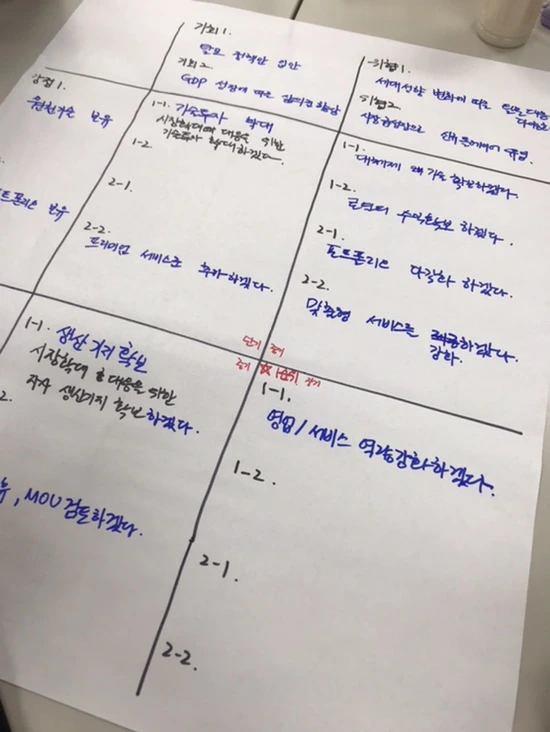 기회 1.
탈모 정책안 입안
기회 2.
GDP 성장에 따른
위협 1.
세대성향 변화에 따른
위협 2.
강점 1.
원천기술 보유
보유
1-1. 기술투자 확대
시장확대에 대응을 위한
기술투자 확대하겠다.
1-2.
2-1.
2-2.
프리미엄 서비스군 추가하겠다.
1-1.
기술 확보하겠다.
1-2.
로열티 수익확보 하겠다.
2-1.
포트폴리오 다각화 하겠다.
2-2.
맞춤형 서비스를 제공하겠다.
강화.
단기 중기
중기 장기
1-1. 생산기지 확보
시장확대 대응을 위한
자사 생산기지 확보하겠다.
2.
, MOU 검토하겠다.
1-1.
영업/서비스 역량강화하겠다.
1-2.
2-1.
2-2.